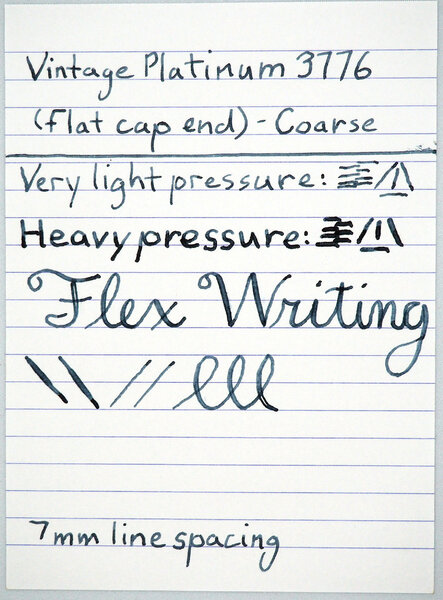 Vintage Platinum 3776
(flat cap end) - Coarse
Very light pressure:
Heavy pressure:
Flex Writing
lll
7mm line spacing